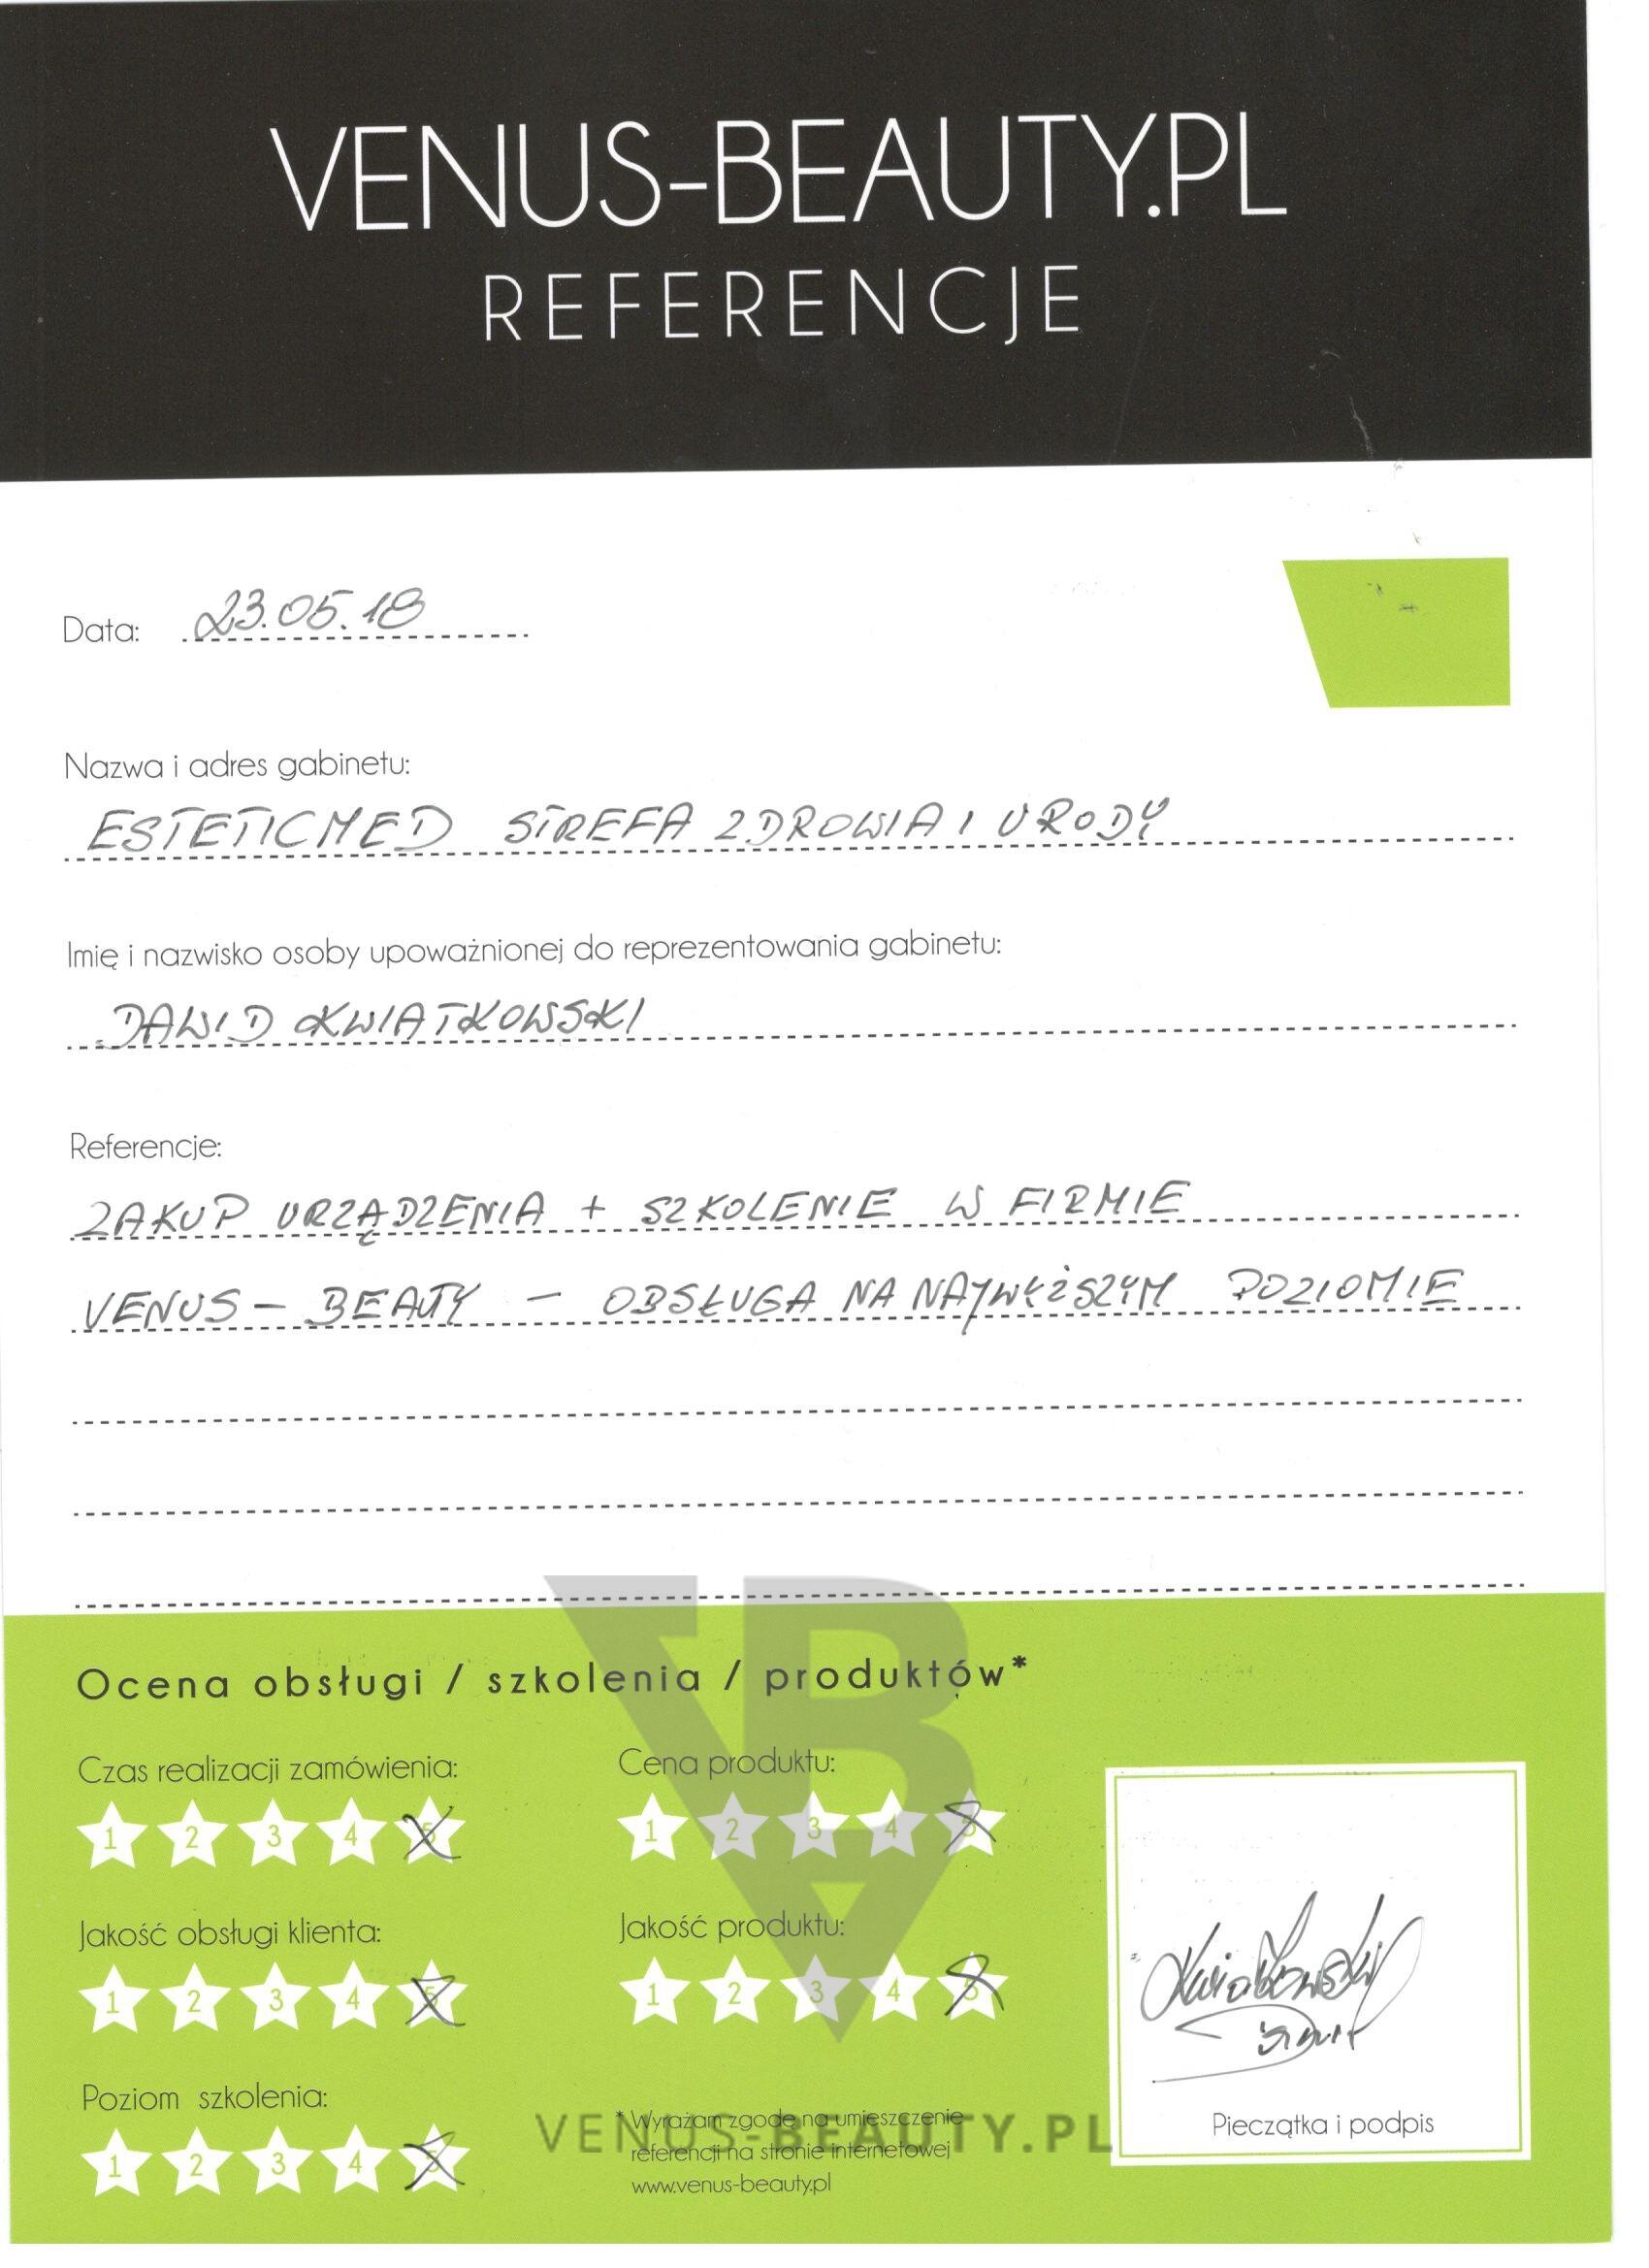 VENUS-BEAUTY.PL
REFERENCJE
Data: 23.05.18
Nazwa i adres gabinetu:
ESTETICMED STREFA ZDROWIA I URODY
Imię i nazwisko osoby upoważnionej do reprezentowania gabinetu:
DAWID KWIATKOWSKI
Referencje:
ZAKUP URZĄDZENIA + SZKOLENIE W FIRMIE
VENUS - BEAUTY - OBSŁUGA NA NAJWYŻSZYM POZIOMIE
Ocena obsługi / szkolenia / produktów*
Czas realizacji zamówienia:
1 2 3 4 5
Jakość obsługi klienta:
1 2 3 4 5
Poziom szkolenia:
1 2 3 4 5
Cena produktu:
1 2 3 4 5
Jakość produktu:
1 2 3 4 5
* Wyrażam zgodę na umieszczenie
referencji na stronie internetowej
www.venus-beauty.pl
VENUS-BEAUTY.PL
Kwiatkowski
Dawid
Pieczątka i podpis